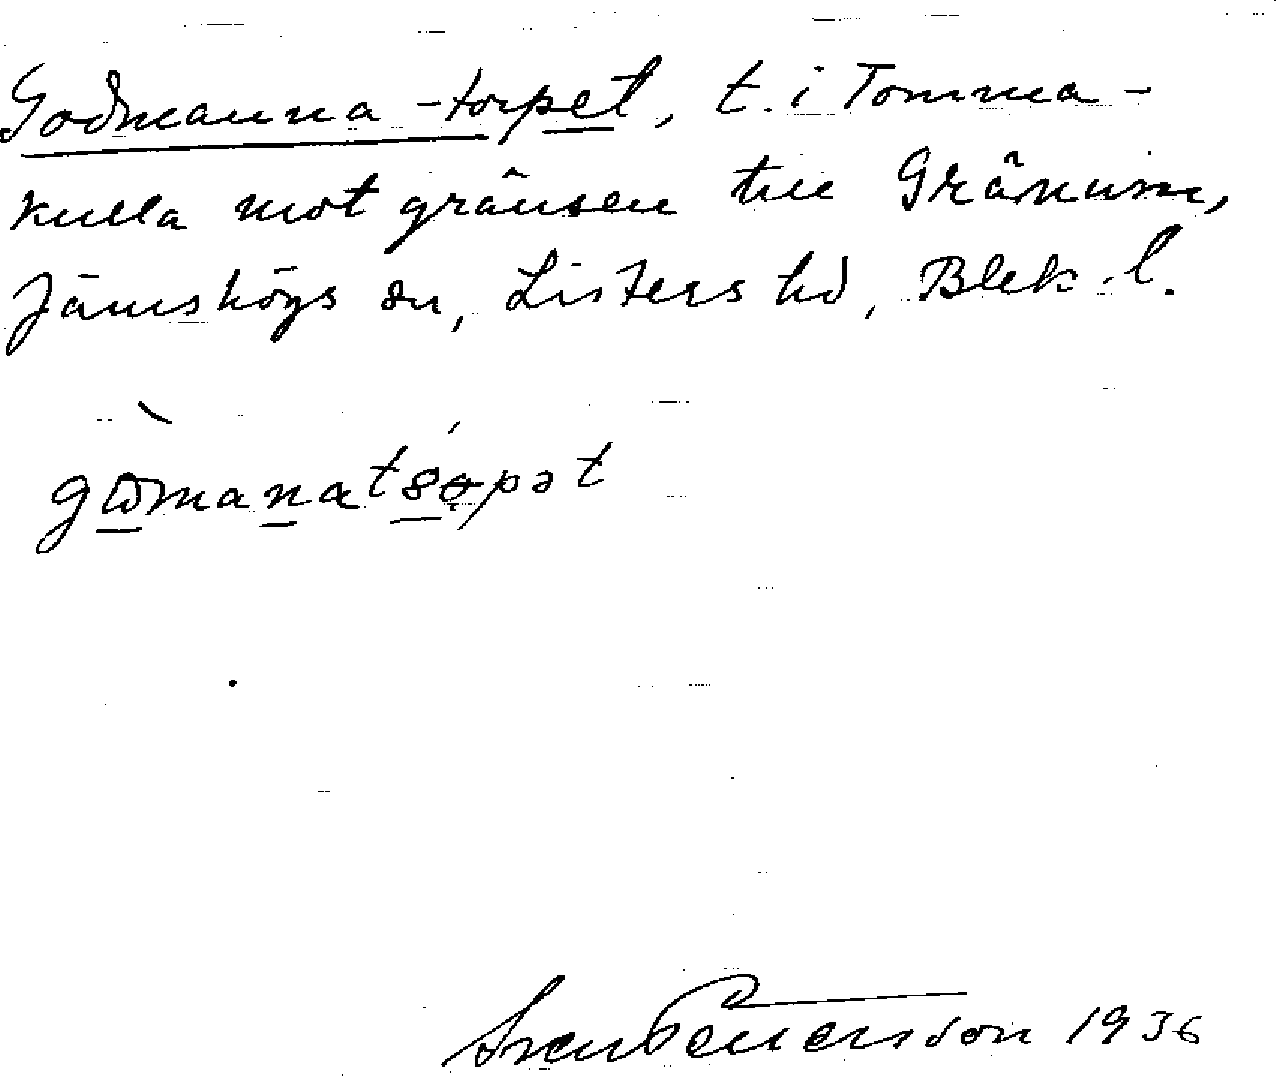 Godmanna-torpet, t. i Tomma-
kulla mot gränsen till Gränum,
Jämshögs sn, Listers hd, Blek. l.
Sven Benson 1936